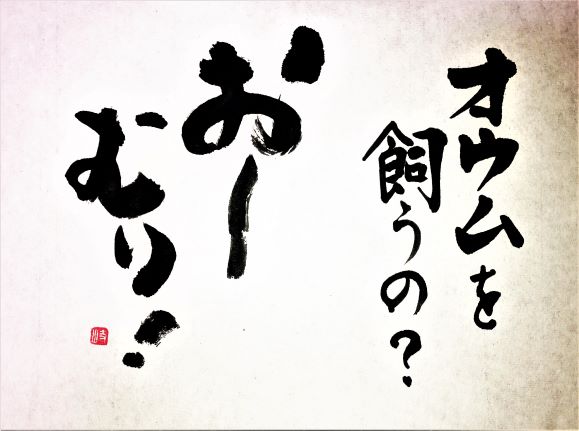 オウムを
飼うの？
おー
むり！